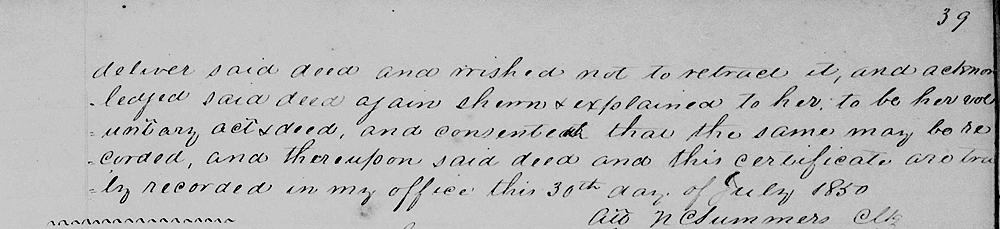 39
deliver said deed and wished not to retract it, and acknow
-ledged said deed again shewn & explained to her, to be her vol
-untary act & deed, and consented that the same may be re
-corded, and thereupon said deed and this certificate are tru
-ly recorded in my office this 30th day of July 1850
Att N C Summers Clk